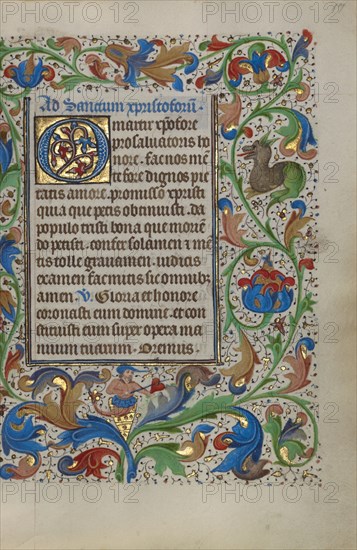 Ad Sanctum xpristoforū.
O martir xpofore
pro saluatoris ho
nore. fac nos me
te fore dignos pie
tatis amore. promisso xpristi
quia que petis obtinuisti. da
populo tristi bona que morien
do petisti. confer solamen & me
tis tolle grauamen. iudicis
examen fac mitis sit omnibz
amen. V. Gloria et honore
coronasti eum domine. et con
stituisti eum super opera ma
nuum tuarum. Oremus.